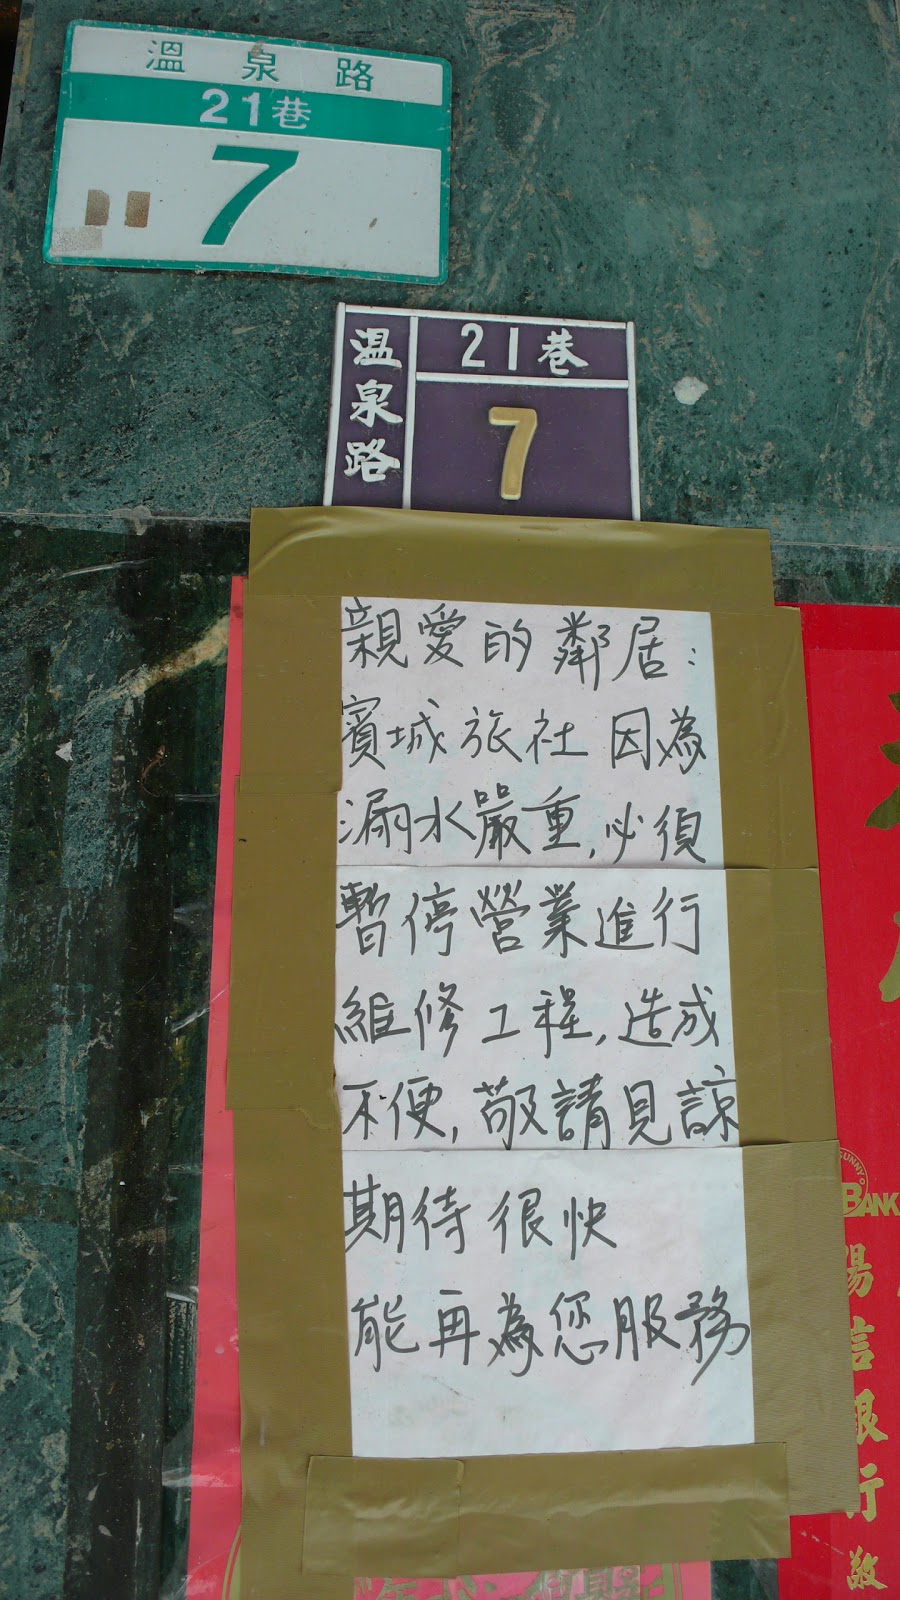 溫泉路
21巷
7
溫泉路
21巷
7
親愛的鄰居:
賓城旅社因為
漏水嚴重,必須
暫停營業進行
維修工程,造成
不便,敬請見諒
期待很快
能再為您服務
SUNNY
BANK
陽信銀行 敬